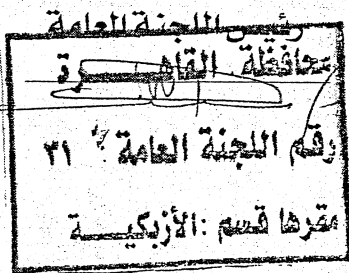 رئيس اللجنة العامة
محافظة القاهـــرة
رقم اللجنة العامة ٣١
مقرها قسم :الأزبكيـــة